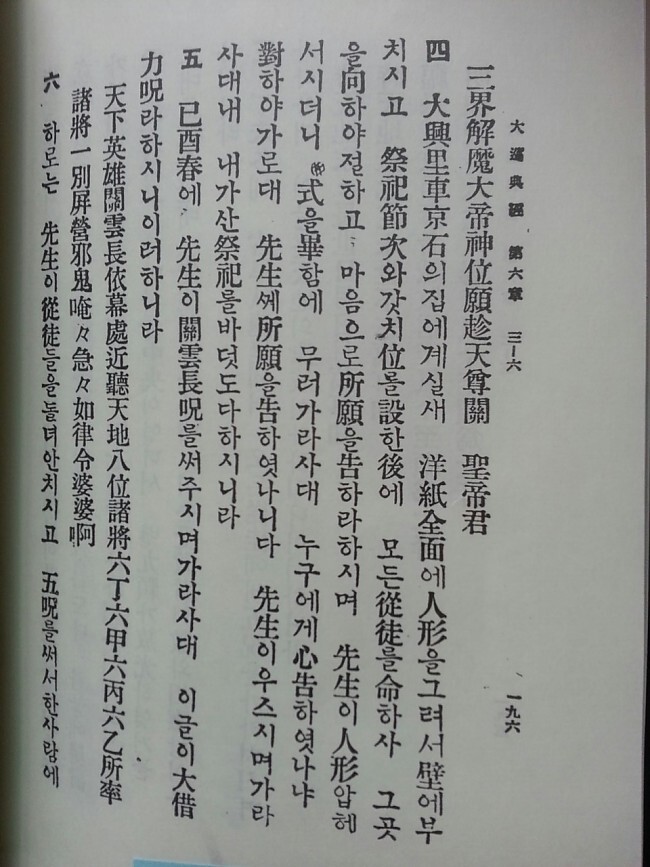 大巡典經 第六章 三―六 一九六
三界解魔大帝神位願趁天尊關 聖帝君
四 大興里車京石의집에계실새 洋紙全面에人形을그려서壁에부
치시고 祭祀節次와갓치位를設한後에 모든從徒를命하사 그곳
을向하야절하고 마음으로所願을告하라하시며 先生이人形압헤
서시더니 式을畢함에 무러가라사대 누구에게心告하엿나냐
對하야가로대 先生께所願을告하엿나니다 先生이우스시며가라
사대내 내가산祭祀를바덧도다하시니라
五 己酉春에 先生이關雲長呪를써주시며가라사대 이글이大借
力呪라하시니이러하니라
天下英雄關雲長依幕處近聽天地八位諸將六丁六甲六丙六乙所率
諸將一別屛營邪鬼唵々急々如律令婆婆啊
六 하로는 先生이從徒들을돌녀안치시고 五呪를써서한사람에